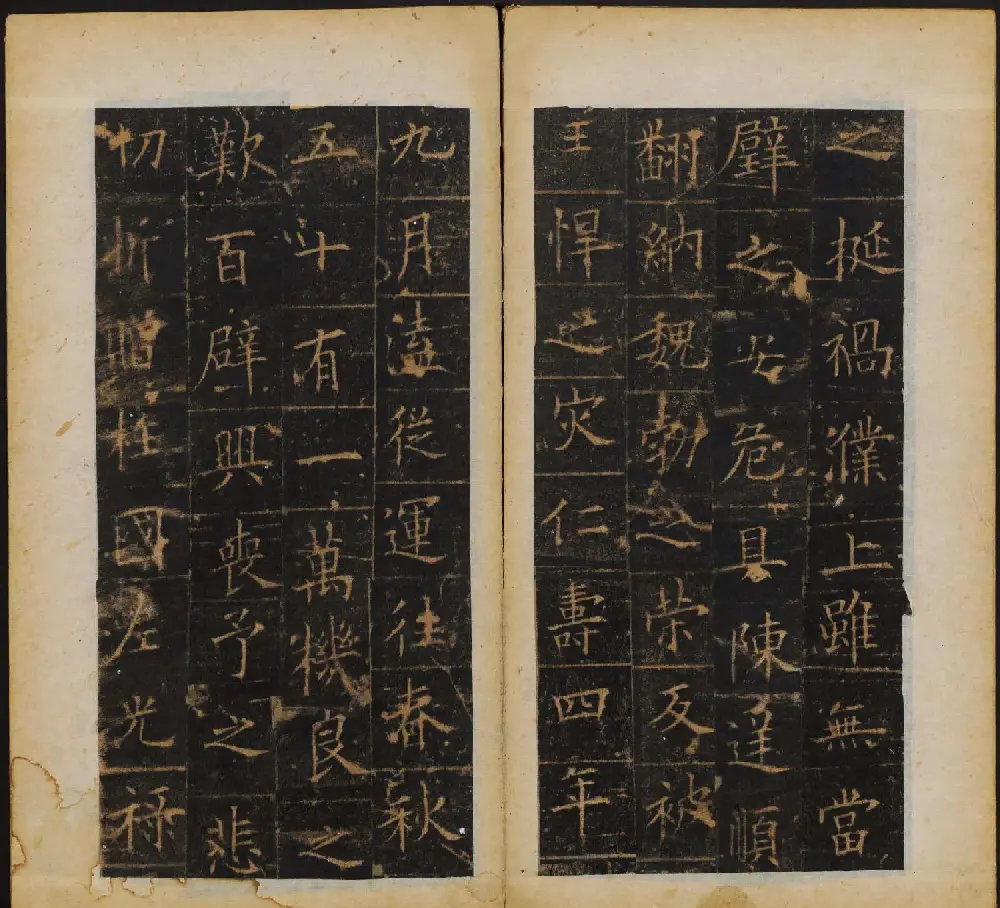 之挺禍濮上雖無當
璧之安危具陳逆順
翻納魏勃之荣反被
王悍之灾仁壽四年
九月溘從運往春秋
五十有一萬機良之
歎百辟興喪予之悲
切折贈柱國左光祿